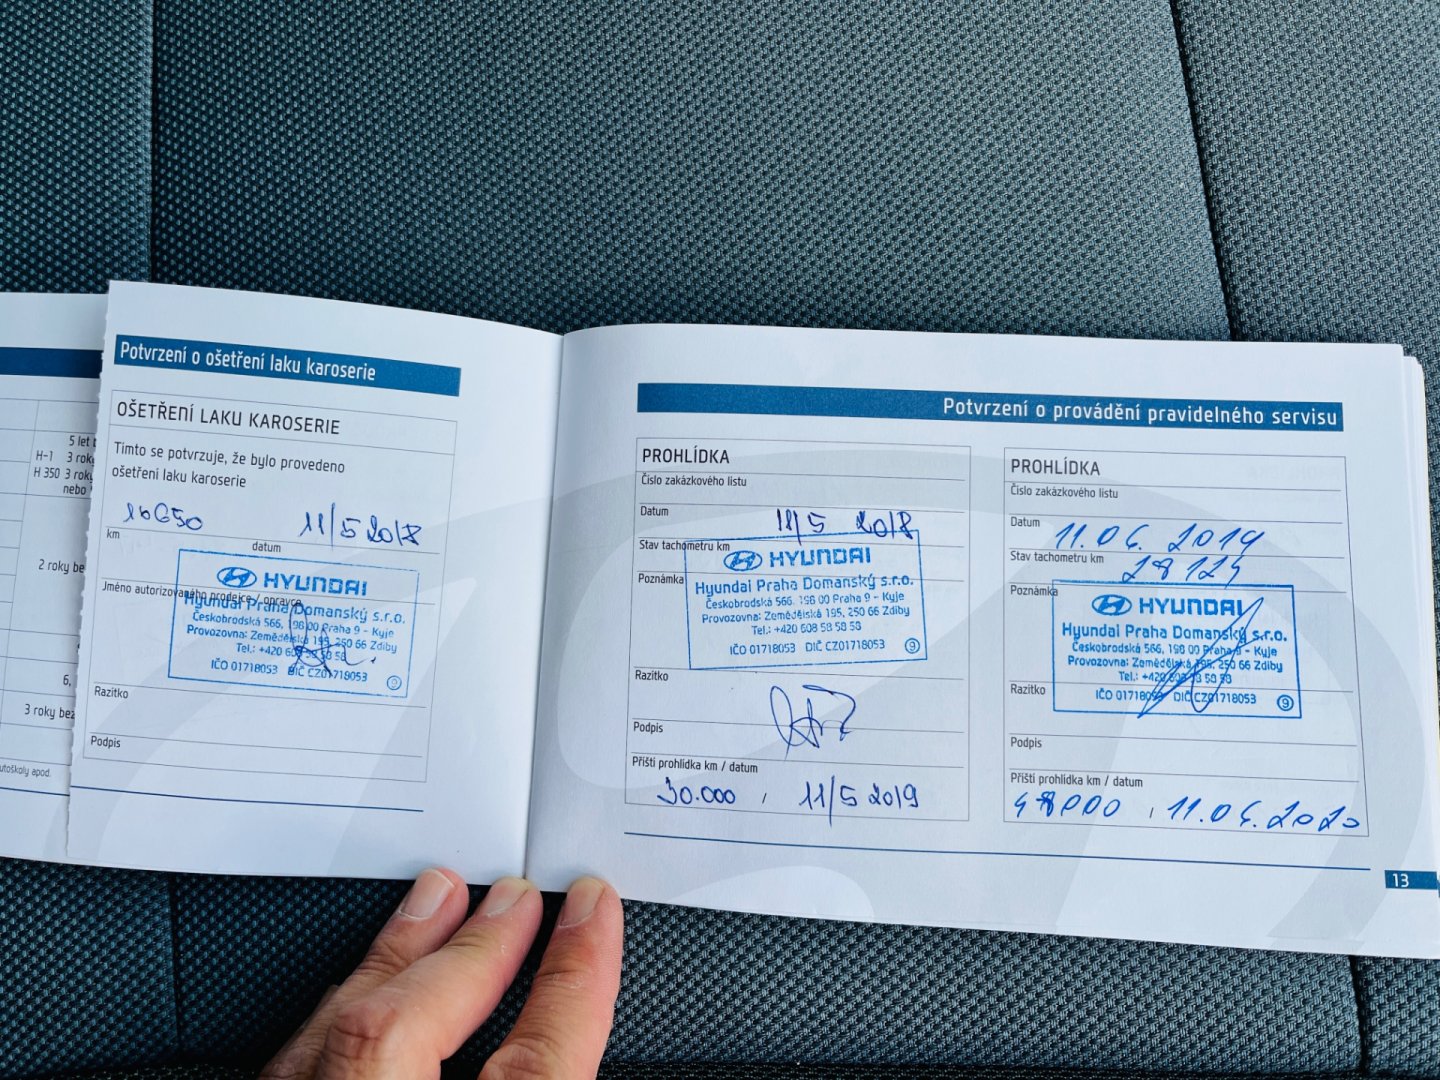 5 let
H-1 3 roky
H 350 3 roky
nebo
2 roky be
6,
3 roky bez
utoškoly apod.
Potvrzení o ošetření laku karoserie
OŠETŘENÍ LAKU KAROSERIE
Tímto se potvrzuje, že bylo provedeno
ošetření laku karoserie
16650 11/5 2018
km datum
Jméno autorizovaného prodejce / opravce
HYUNDAI
Hyundai Praha Domanský s.r.o.
Českobrodská 566, 198 00 Praha 9 - Kyje
Provozovna: Zemědělská 195, 250 66 Zdiby
Tel.: +420 608 58 58 58
IČO 01718053 DIČ CZ01718053 9
Razítko
Podpis
Potvrzení o provádění pravidelného servisu
PROHLÍDKA
Číslo zakázkového listu
Datum 11/5 2018
Stav tachometru km
Poznámka
HYUNDAI
Hyundai Praha Domanský s.r.o.
Českobrodská 566, 198 00 Praha 9 - Kyje
Provozovna: Zemědělská 195, 250 66 Zdiby
Tel.: +420 608 58 58 58
IČO 01718053 DIČ CZ01718053 9
Razítko
Podpis
Příští prohlídka km / datum
30.000 / 11/5 2019
PROHLÍDKA
Číslo zakázkového listu
Datum 11.06.2019
Stav tachometru km 28124
Poznámka
HYUNDAI
Hyundai Praha Domanský s.r.o.
Českobrodská 566, 198 00 Praha 9 - Kyje
Provozovna: Zemědělská 195, 250 66 Zdiby
Tel.: +420 608 58 58 58
IČO 01718053 DIČ CZ01718053 9
Razítko
Podpis
Příští prohlídka km / datum
48000 / 11.06.2020
13